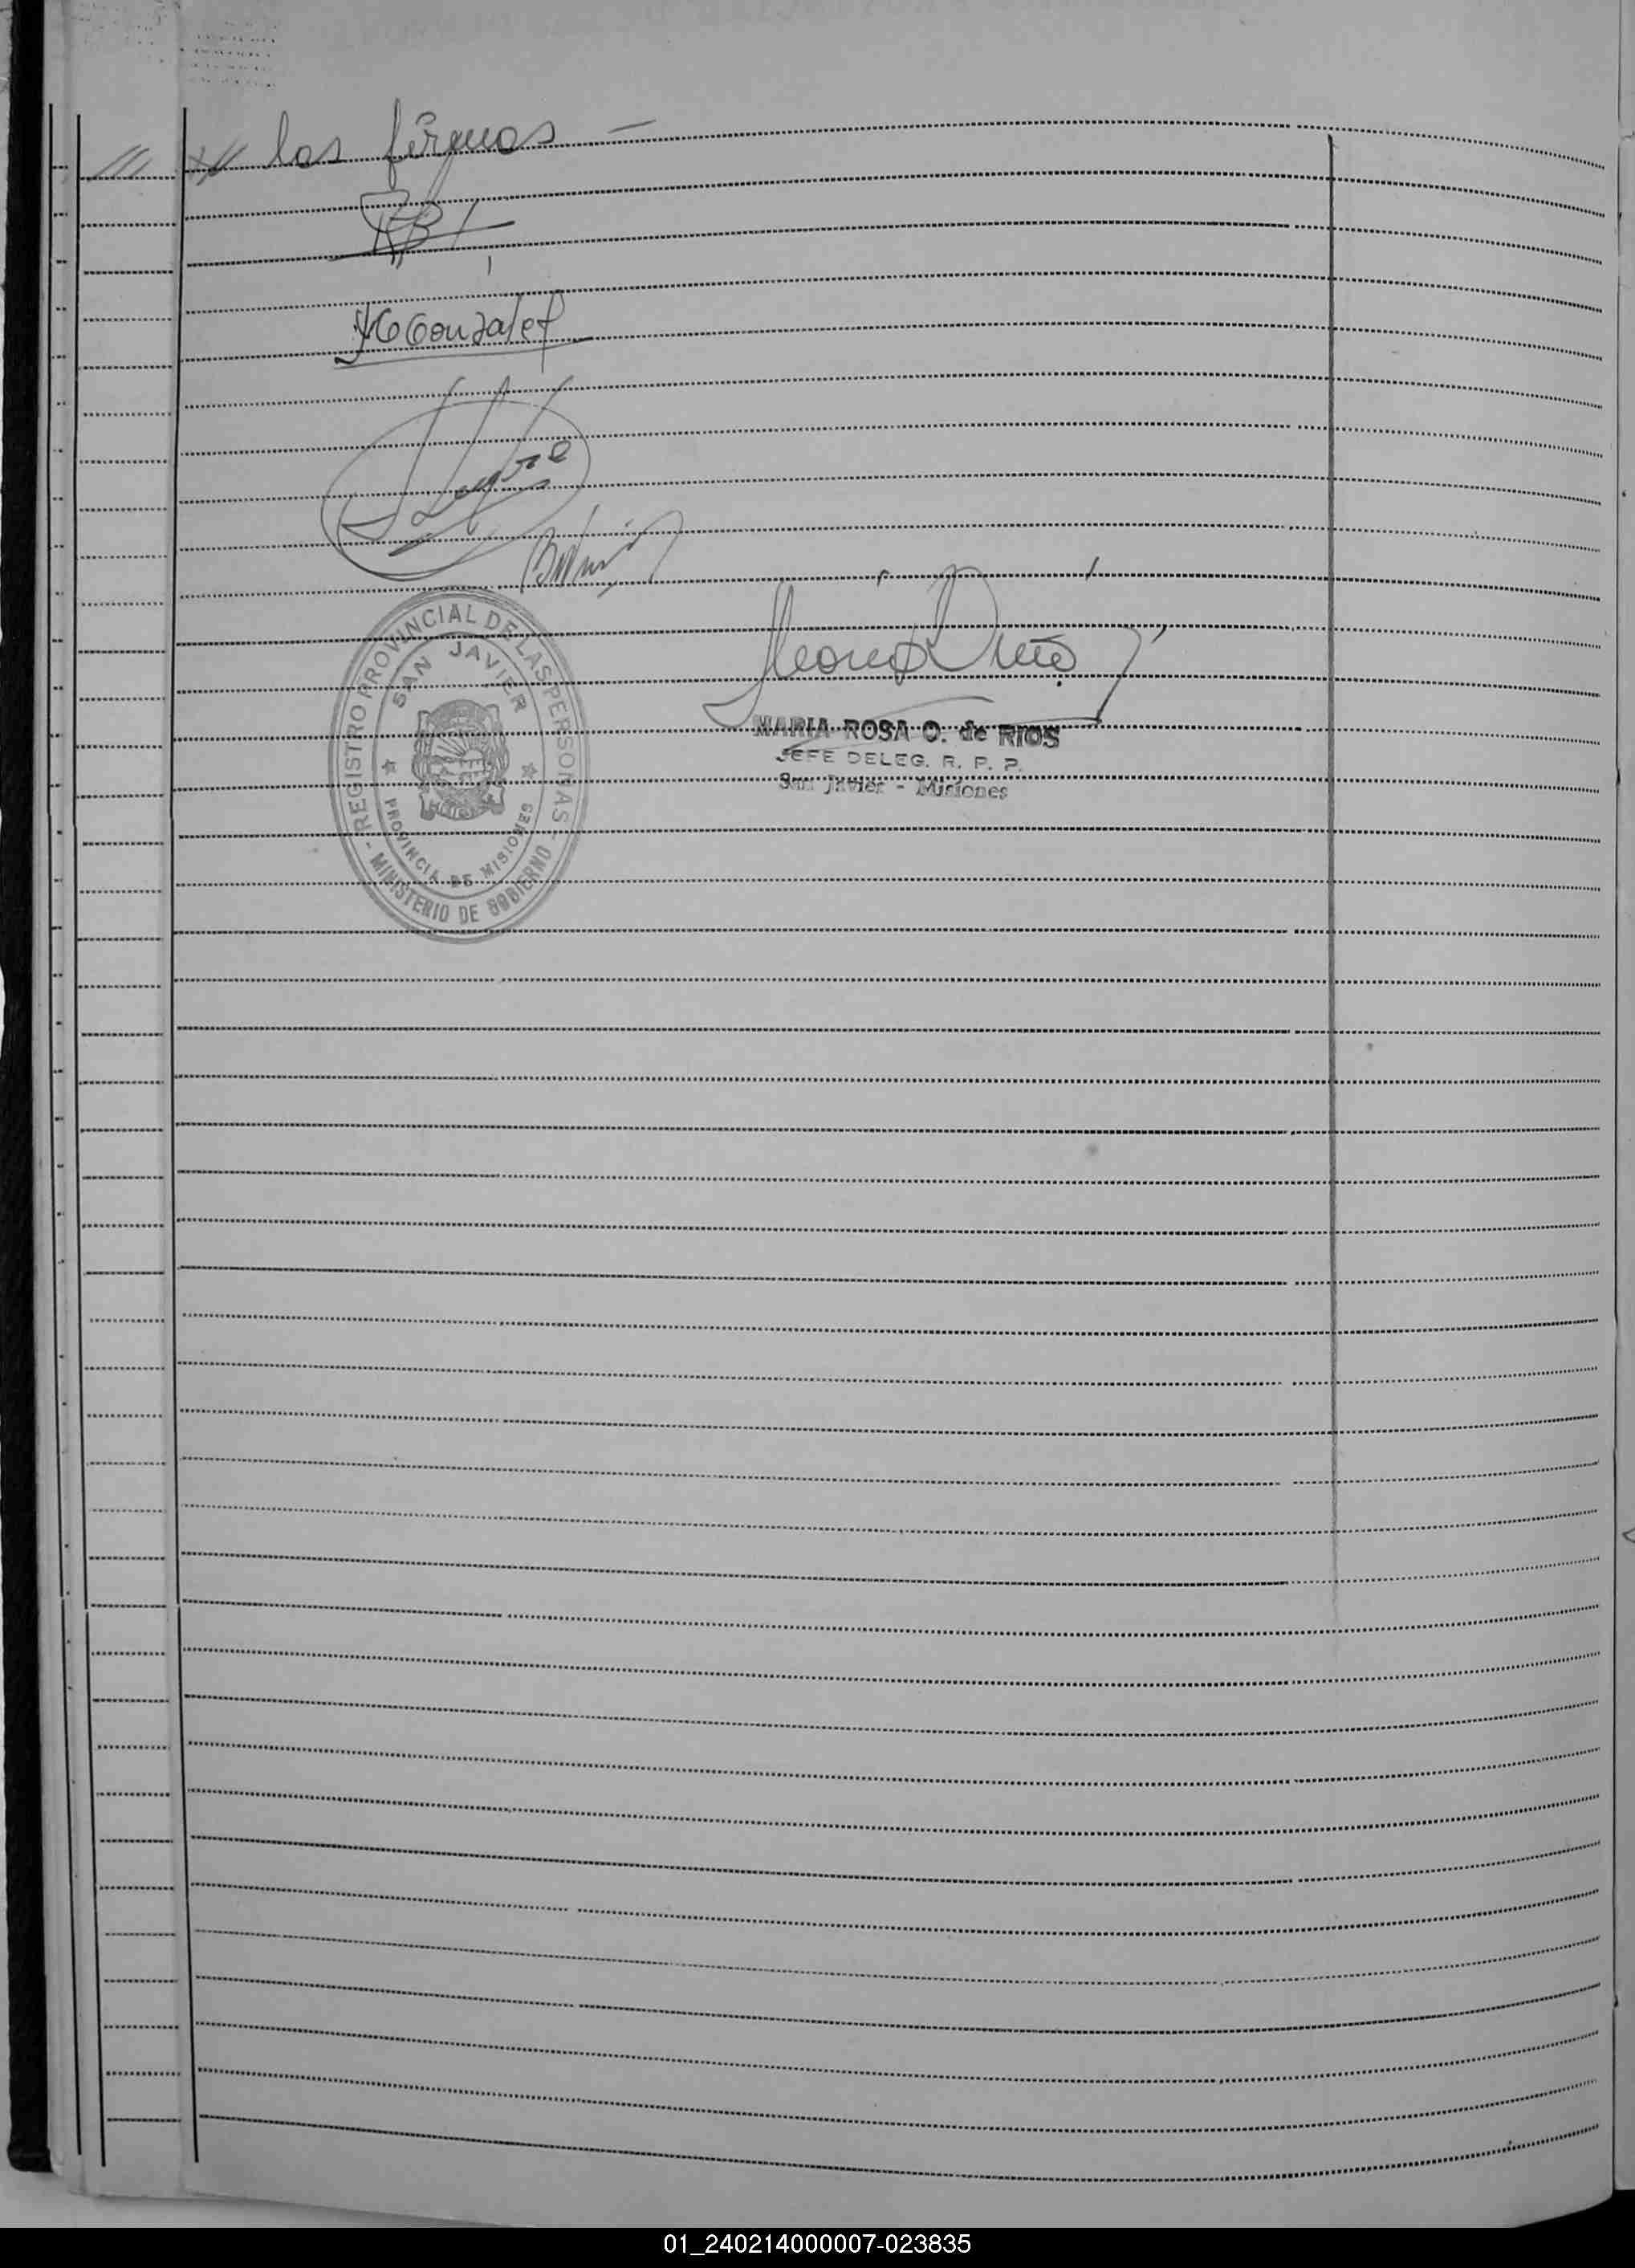 /// las firmas —
González
REGISTRO PROVINCIAL DE LAS PERSONAS
- MINISTERIO DE GOBIERNO -
SAN JAVIER
PROVINCIA DE MISIONES
MARIA ROSA O. de RIOS
JEFE DELEG. R. P. P.
San Javier - Misiones
01_240214000007-023835